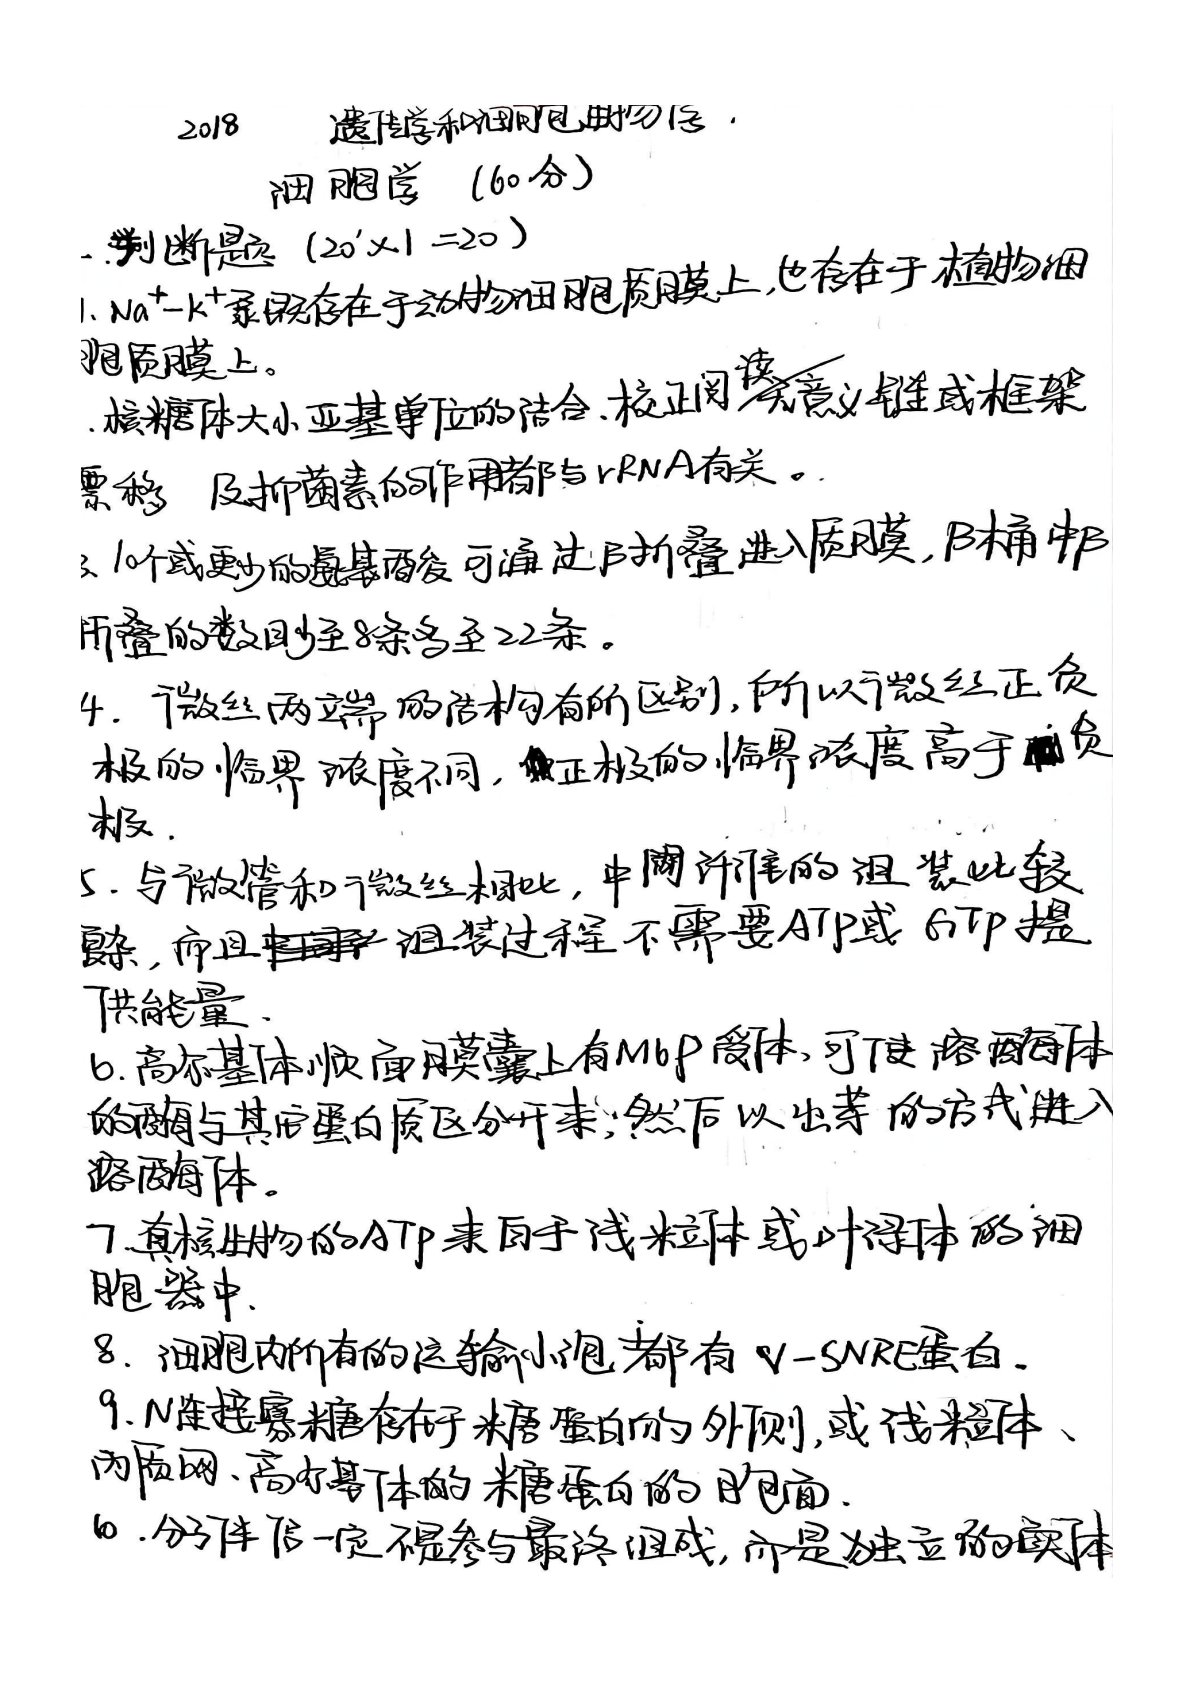 2018 遗传学和细胞生物学.
细胞学 (60分)
一.判断题 (20'×1=20)
1. Na⁺-K⁺泵既存在于动物细胞质膜上,也存在于植物细
胞质膜上。
.核糖体大小亚基单位的结合、校正阅读无意义链或框架
票移 及抑菌素的作用都与rRNA有关。
3、10个或更少的氨基酸可通过β折叠进入质膜,β桶中β
折叠的数目少至8条多至22条。
4. 微丝两端的结构有所区别,所以微丝正负
极的临界浓度不同,正极的临界浓度高于负
极.
5. 与微管和微丝相比,中间纤维的组装比较
复杂,而且组装过程不需要ATP或GTP提
供能量.
6.高尔基体顺面膜囊上有M6P受体,可使溶酶体
的酶与其它蛋白质区分开来;然后以出芽的方式进入
溶酶体。
7.真核生物的ATP来自于线粒体或叶绿体的细
胞器中.
8. 细胞内所有的运输小泡都有V-SNRE蛋白.
9.N连接寡糖存在于糖蛋白的外侧,或线粒体、
内质网、高尔基体的糖蛋白的胞面.
10.分子伴侣一定不是参与最终组成,而是独立的实体